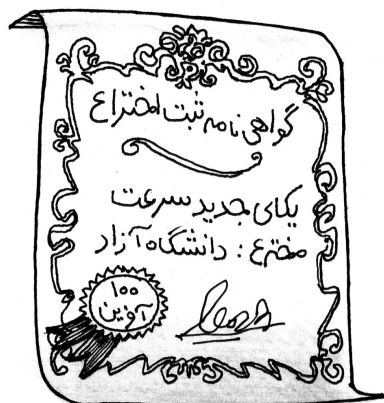 گواهی نامه ثبت اختراع
یکای جدید سرعت
مخترع : دانشگاه آزاد
۱۰۰
آفرین